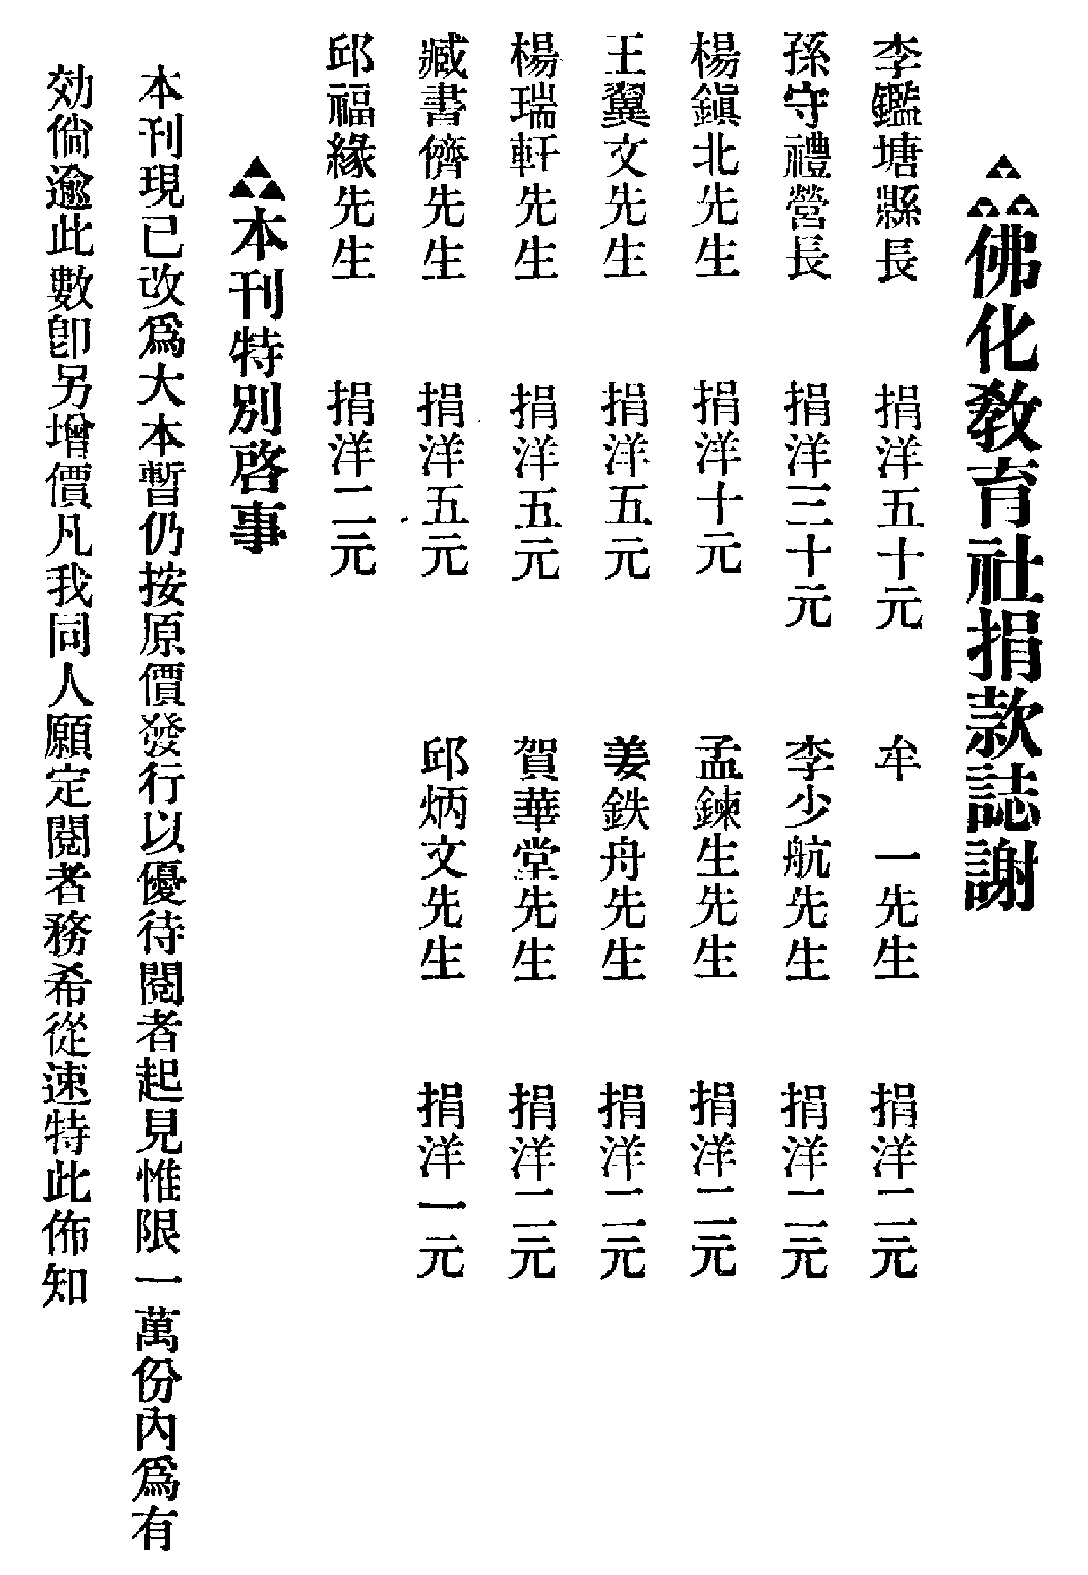 佛化敎育社捐款誌謝
李鑑塘縣長　捐洋五十元　牟　一先生　捐洋二元
孫守禮營長　捐洋三十元　李少航先生　捐洋二元
楊鎭北先生　捐洋十元　孟鍊生先生　捐洋二元
王翼文先生　捐洋五元　姜鉄舟先生　捐洋二元
楊瑞軒先生　捐洋五元　賀華堂先生　捐洋二元
臧書儕先生　捐洋五元　邱炳文先生　捐洋一元
邱福緣先生　捐洋二元
本刊特別啓事
本刊現已改爲大本暫仍按原價發行以優待閱者起見惟限一萬份內爲有
効倘逾此數卽另增價凡我同人願定閱者務希從速特此佈知